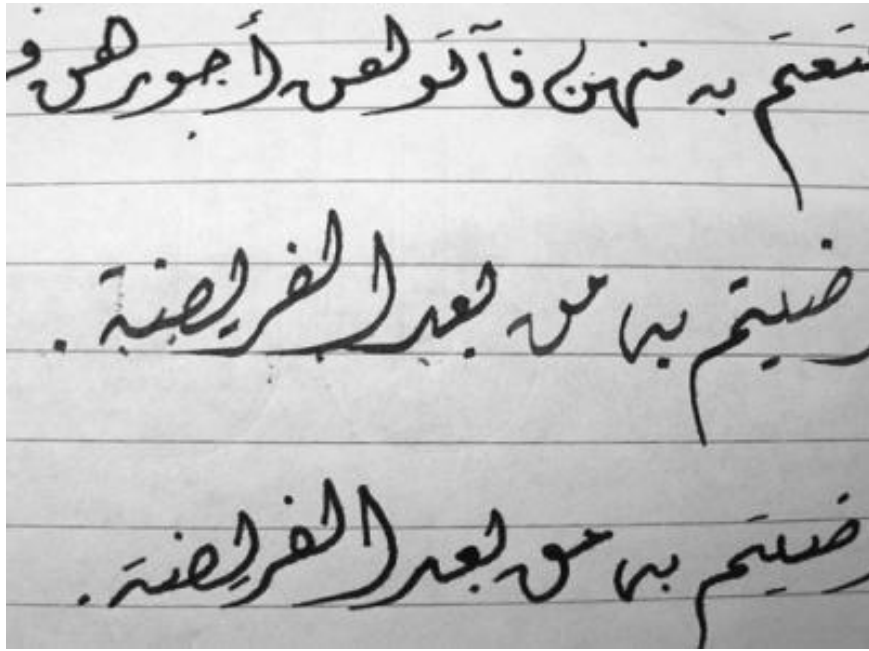 ـتعتم به منهن فآتو لهن أجورهن فـ
ضيتم به من بعد الفريضة .
ضيتم به من بعد الفريضة .